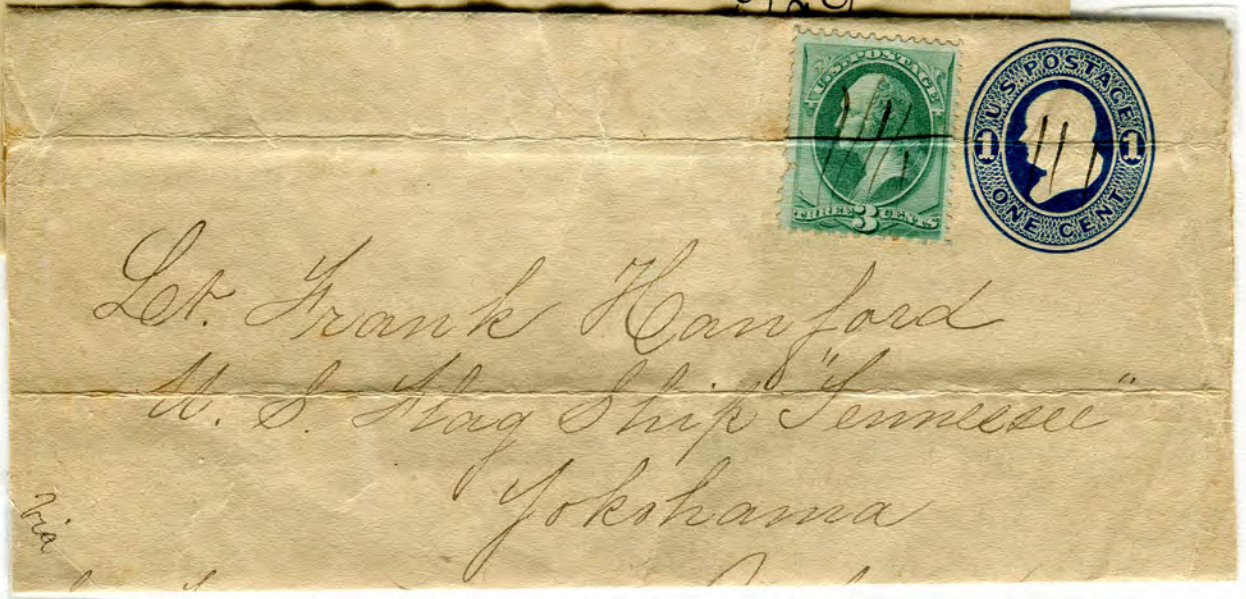 U.S. POSTAGE
THREE 3 CENTS
U.S. POSTAGE
1 1
ONE CENT
Let. Frank Hanford
U. S. Flag Ship "Tennessee"
Yokohama
via